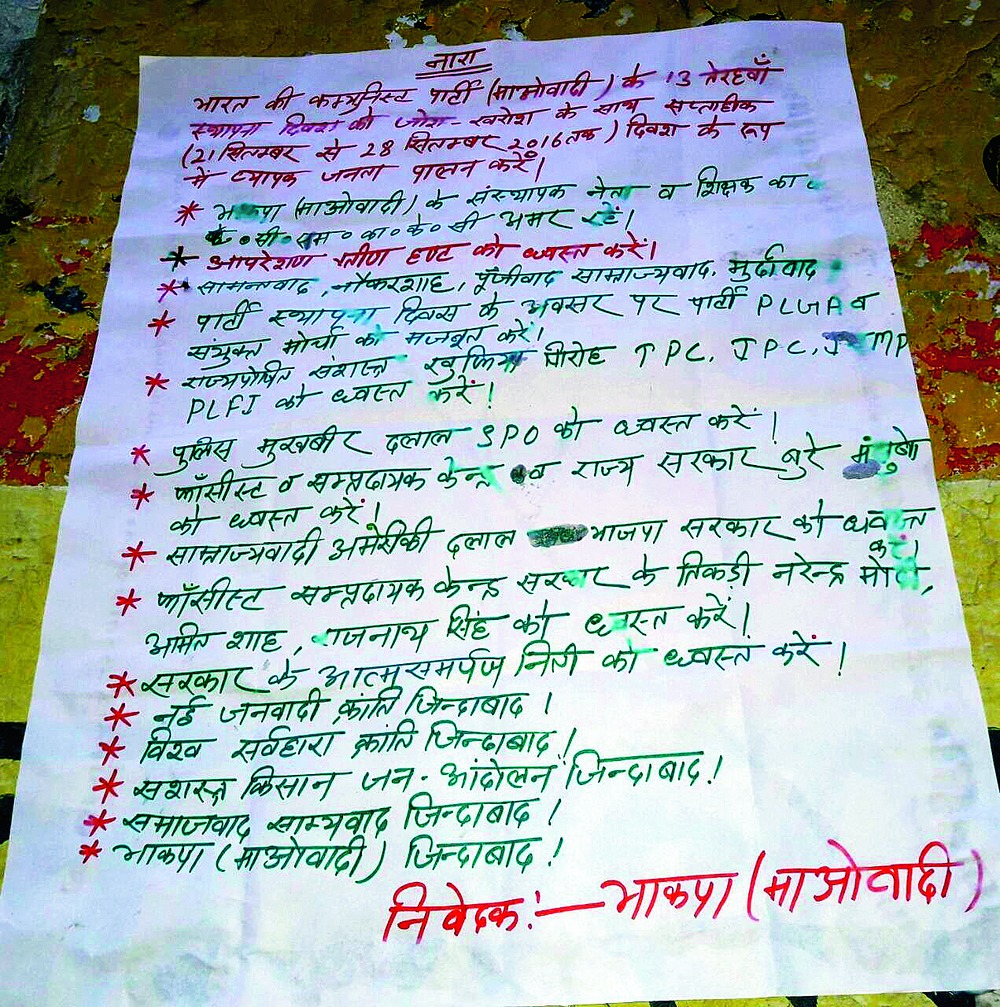 नारा
भारत की कम्युनिस्ट पार्टी (माओवादी) के 13 तेरहवाँ
स्थापना दिवश को जोश-खरोश के साथ सप्ताहीक
(21 सितम्बर से 28 सितम्बर 2016 तक) दिवश के रूप
में व्यापक जनता पालन करें।
* भाकपा (माओवादी) के संस्थापक नेता व शिक्षक का॰
सी॰ एम॰ का॰ के॰ सी अमर रहें।
* आपरेशण ग्रीण हण्ट को ध्वस्त करें।
* सामन्तवाद, नौकरशाह, पूँजीवाद साम्राज्यवाद, मुर्दावाद
* पार्टी स्थापना दिवस के अवसर पर पार्टी PLGA व
संयुक्त मोर्चा को मजबूत करें।
* राज्यपोषित संशस्त्र खुफिया गिरोह TPC, JPC, J MP
PLFI को ध्वस्त करें!
* पुलिस मुखबीर दलाल SPO को ध्वस्त करें!
* फाँसीस्ट व सम्प्रदायक केन्द्र व राज्य सरकार बुरे
को ध्वस्त करें!
* साम्राज्यवादी अमेरीकी दलाल भाजपा सरकार को ध्वस्त
करें।
* फाँसीस्ट सम्प्रदायक केन्द्र सरकार के तिकड़ी नरेन्द्र मोदी,
अमित शाह, राजनाथ सिंह को ध्वस्त करें!
* सरकार के आत्मसमर्पण निती को ध्वस्त करें!
* नई जनवादी क्रांति जिन्दाबाद।
* विश्व सर्वहारा क्रांति जिन्दाबाद!
* सशस्त्र किसान जन-आंदोलन जिन्दाबाद!
* समाजवाद साम्यवाद जिन्दाबाद!
* भाकपा (माओवादी) जिन्दाबाद!
निवेदक:— भाकपा (माओवादी)